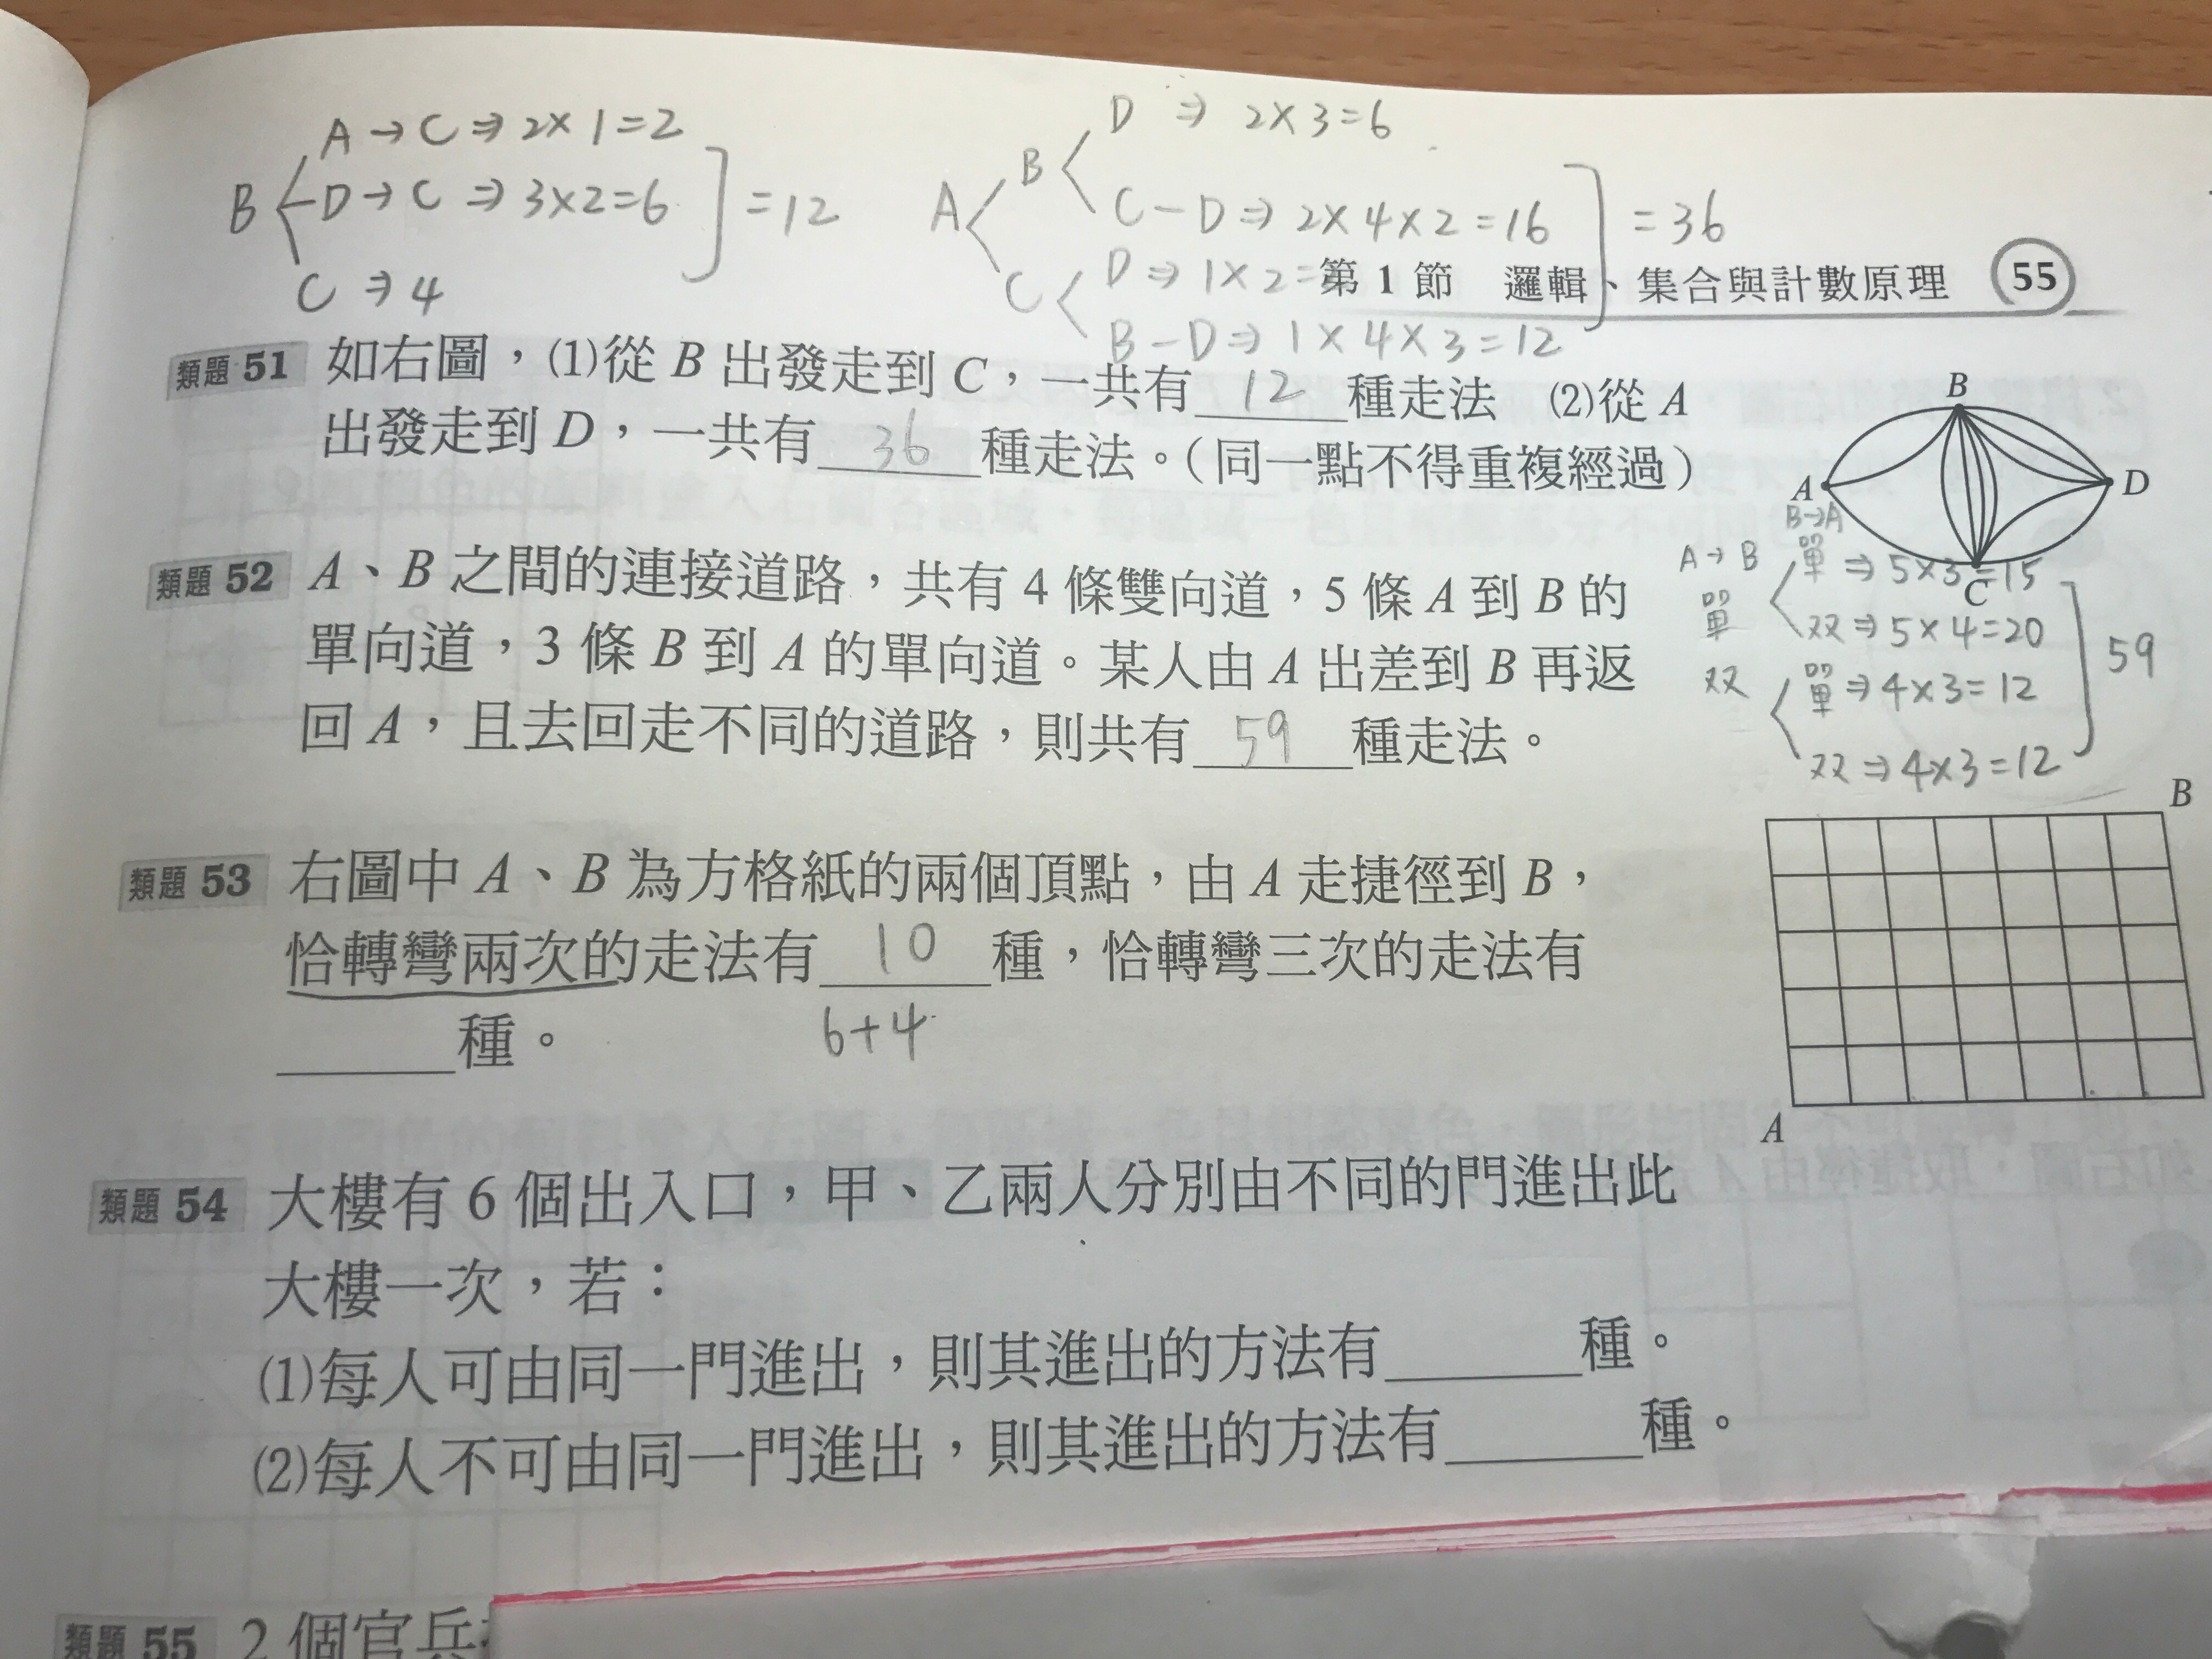 A → C ⇒ 2×1=2
B D → C ⇒ 3×2=6 =12
C ⇒ 4
D ⇒ 2×3=6
B
A C－D ⇒ 2×4×2=16 =36
C D ⇒ 1×2=
B－D ⇒ 1×4×3=12
第1節 邏輯、集合與計數原理 55
類題51 如右圖，(1)從B出發走到C，一共有 12 種走法 (2)從A
出發走到D，一共有 36 種走法。(同一點不得重複經過)
B
A
D
C
類題52 A、B之間的連接道路，共有4條雙向道，5條A到B的
單向道，3條B到A的單向道。某人由A出差到B再返
回A，且去回走不同的道路，則共有 59 種走法。
B→A
A→B 單 ⇒ 5×3=15
單 双 ⇒ 5×4=20
双 單 ⇒ 4×3=12
双 ⇒ 4×3=12
59
類題53 右圖中A、B為方格紙的兩個頂點，由A走捷徑到B，
恰轉彎兩次的走法有 10 種，恰轉彎三次的走法有
種。
6+4
B
A
類題54 大樓有6個出入口，甲、乙兩人分別由不同的門進出此
大樓一次，若：
(1)每人可由同一門進出，則其進出的方法有 種。
(2)每人不可由同一門進出，則其進出的方法有 種。
類題55 2個官兵